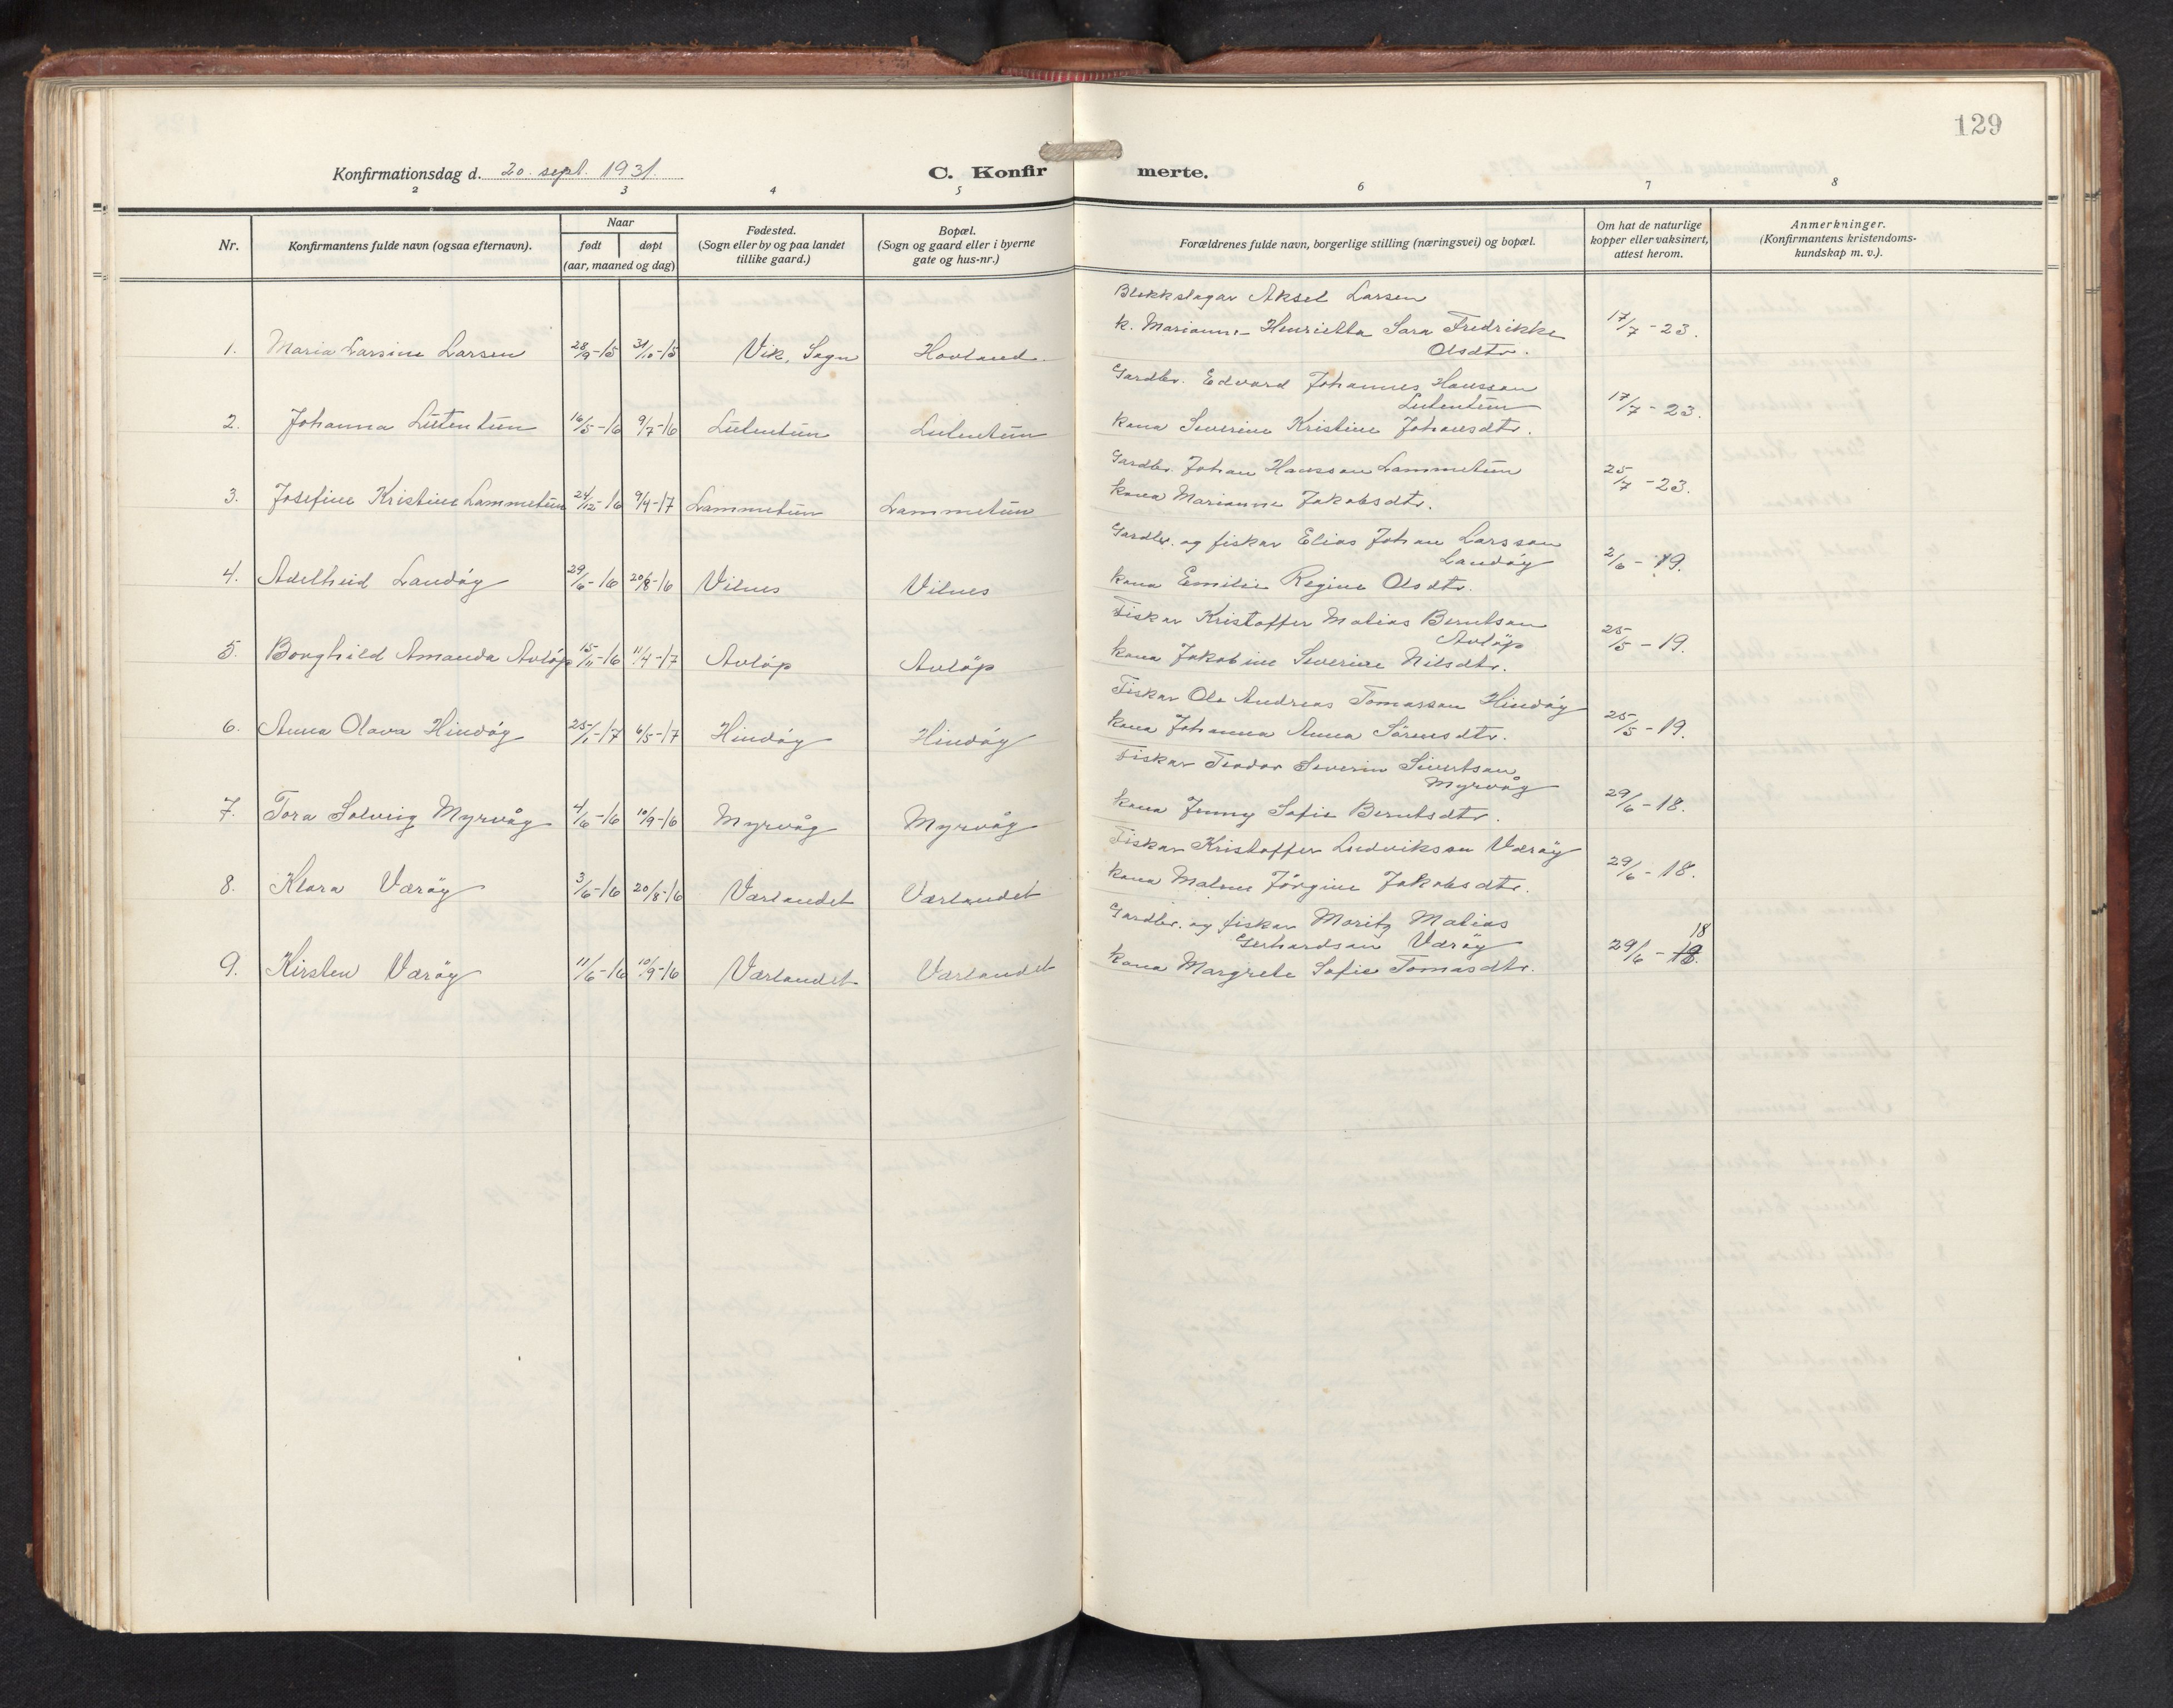 129
Konfirmationsdag d. 20. sept. 1931.
C. Konfirmerte.
2 3 4 5 6 7 8
Nr.
Konfirmantens fulde navn (ogsaa efternavn).
Naar
født døpt
(aar, maaned og dag)
Fødested.
(Sogn eller by og paa landet
tillike gaard.)
Bopæl.
(Sogn og gaard eller i byerne
gate og hus-nr.)
Forældrenes fulde navn, borgerlige stilling (næringsvei) og bopæl.
Om hat de naturlige
kopper eller vaksinert,
attest herom.
Anmerkninger.
(Konfirmantens kristendoms-
kundskap m. v.).
Blekkslagar Aksel Larsen
k. Marianne Henrietta Sara Fredrikke
Olsdtr.
1. Maria Larsine Larsen 28/9-15 31/10-15 Vik, Sogn Hovland 17/7-23.
Gardbr. Edvard Johannes Hansson
Lutentun
2. Johanna Lutentun 16/5-16 9/7-16 Lutentun Lutentun kona Severine Kristine Johansdtr. 17/7-23.
Gardbr. Johan Hansson Lammetun
3. Josefine Kristine Lammetun 24/12-16 9/4-17 Lammetun Lammetun kona Marianne Jakobsdtr. 25/7-23.
Gardbr. og fiskar Elias Johan Larsson
Landøy
4. Adelheid Landøy 29/6-16 20/8-16 Vilnes Vilnes kona Emilie Regine Olsdtr. 2/6-19.
Fiskar Kristoffer Matias Berntson
Avløp
5. Borghild Amanda Avløp 15/11-16 11/4-17 Avløp Avløp kona Jakobine Severine Nilsdtr. 25/5-19.
Fiskar Ole Andreas Tomasson Hindøy
6. Anna Olava Hindøy 25/1-17 6/5-17 Hindøy Hindøy kona Johanna Anna Sørensdtr. 25/5-19.
Fiskar Teodor Severin Sivertson
Myrvåg
7. Tora Solveig Myrvåg 4/6-16 10/9-16 Myrvåg Myrvåg kona Jenny Sofie Berntsdtr. 29/6-18.
Fiskar Kristoffer Ludvikson Værøy
8. Klara Værøy 3/6-16 20/8-16 Værlandet Værlandet kona Malene Jørgine Jakobsdtr. 29/6-18.
Gardbr. og fiskar Moritz Matias
Gerhardson Værøy
9. Kirsten Værøy 11/6-16 10/9-16 Værlandet Værlandet kona Margrete Sofie Tomasdtr. 29/6-18